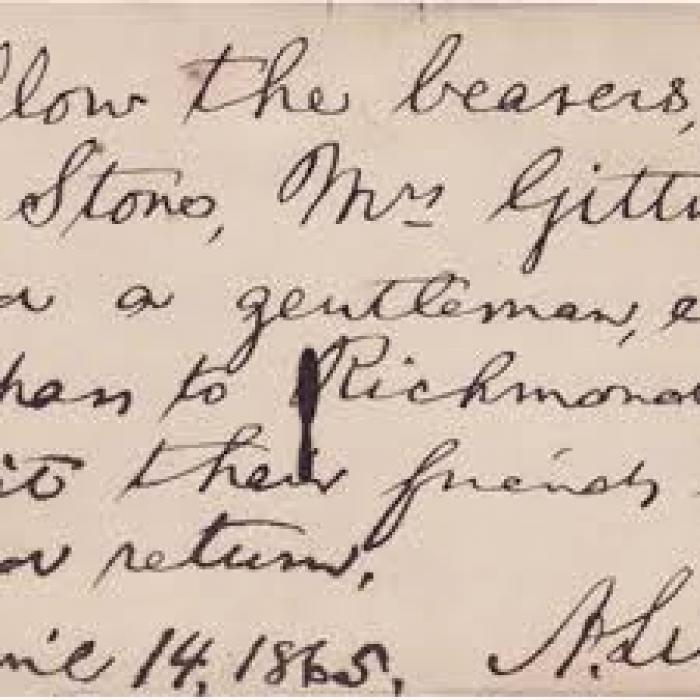 llow the bearers,
Stone, Mrs Gittin
d a gentleman,
pass to Richmond
it their friends
or return.
ril 14, 1865. A. Li